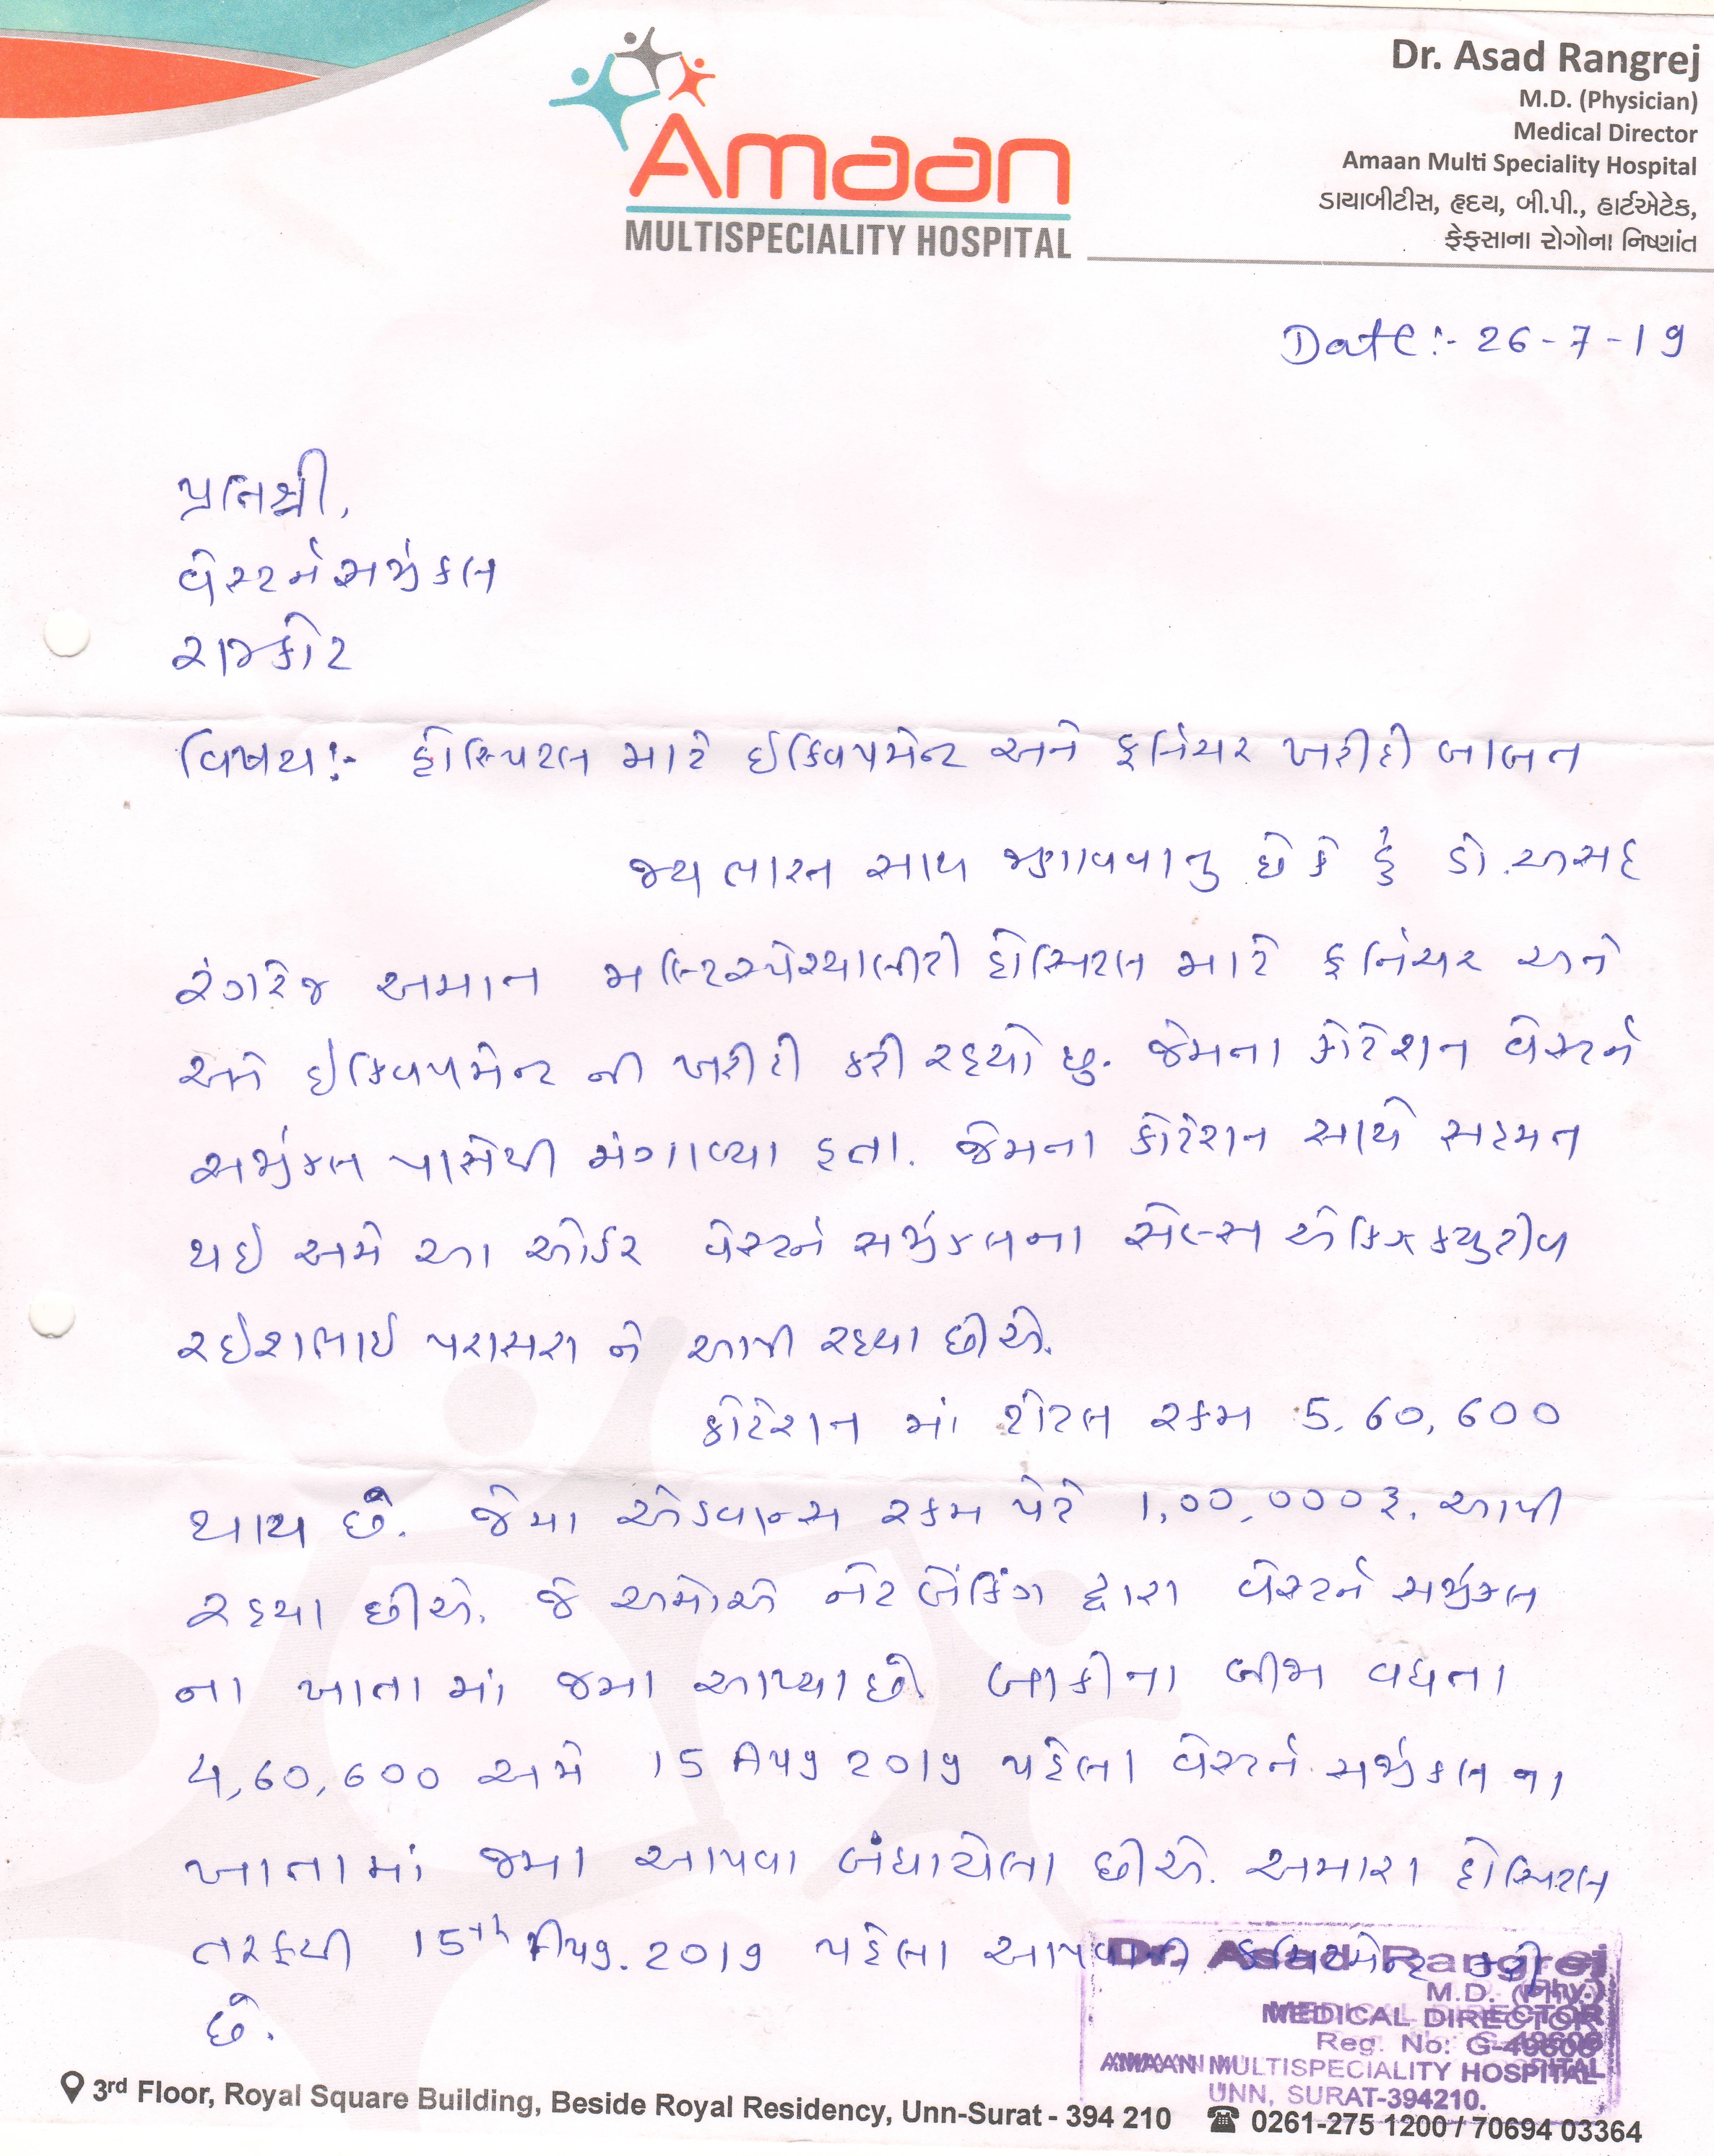 Amaan
MULTISPECIALITY HOSPITAL
Dr. Asad Rangrej
M.D. (Physician)
Medical Director
Amaan Multi Speciality Hospital
ડાયાબીટીસ, હૃદય, બી.પી., હાર્ટએટેક,
ફેફસાના રોગોના નિષ્ણાંત
Date:- 26-7-19
પ્રતિશ્રી,
વેસ્ટર્ન સર્જીકલ
રાજકોટ
વિષય:- હોસ્પિટલ માટે ઈક્વિપમેન્ટ અને ફર્નિચર ખરીદી બાબત
જય ભારત સાથ જણાવવાનુ છે કે હું ડો. અસદ
રંગરેજ અમાન મલ્ટિસ્પેશ્યાલીટી હોસ્પિટલ માટે ફર્નિચર અને
અને ઈક્વિપમેન્ટ ની ખરીદી કરી રહયો છુ. જેમના કોટેશન વેસ્ટર્ન
સર્જીકલ પાસેથી મંગાવ્યા હતા. જેમના કોટેશન સાથે સહમત
થઈ અમે આ ઓર્ડર વેસ્ટર્ન સર્જીકલના સેલ્સ એક્ઝિક્યુટીવ
રઈશભાઈ પરાસરા ને આપી રહયા છીએ.
કોટેશન માં ટોટલ રકમ 5,60,600
થાય છે. જેમા એડવાન્સ રકમ પેટે 1,00,000 રૂ. આપી
રહયા છીએ. જે અમોએ નેટ બેંકિંગ દ્વારા વેસ્ટર્ન સર્જીકલ
ના ખાતા માં જમા આપ્યા છે. બાકીના બીજા વધતા
4,60,600 અમે 15 Aug 2019 પહેલા વેસ્ટર્ન સર્જીકલ ના
ખાતામાં જમા આપવા બંધાયેલા છીએ. અમારા હોસ્પિટલ
તરફથી 15th Aug. 2019 પહેલા આપવાની કમિટમેન્ટ કરી
છે.
Dr. Asad Rangrej
M.D. (Phy.)
MEDICAL DIRECTOR
Reg. No: G-49608
AMAAN MULTISPECIALITY HOSPITAL
UNN, SURAT-394210.
3rd Floor, Royal Square Building, Beside Royal Residency, Unn-Surat - 394 210 0261-275 1200 / 70694 03364